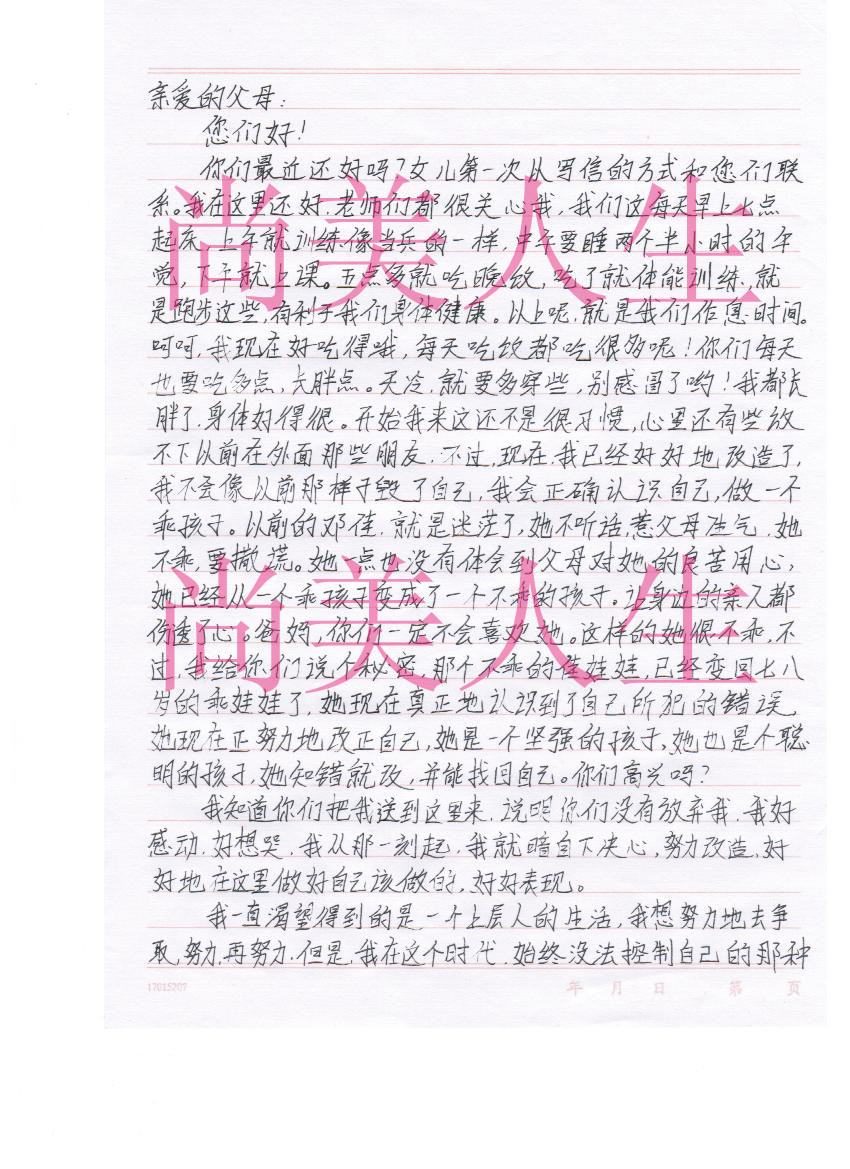 亲爱的父母:
您们好!
你们最近还好吗?女儿第一次以写信的方式和您们联
系。我在这里还好,老师们都很关心我,我们这每天早上七点
起床,上午就训练像当兵的一样,中午要睡两个半小时的午
觉,下午就上课。五点多就吃晚饭,吃了就体能训练,就
是跑步这些,有利于我们身体健康。以上呢,就是我们作息时间。
呵呵,我现在好吃得哦,每天吃饭都吃很多呢!你们每天
也要吃多点,长胖点。天冷,就要多穿些,别感冒了哟!我都长
胖了,身体好得很。开始我来这还不是很习惯,心里还有些放
不下以前在外面那些朋友,不过,现在,我已经好好地改造了,
我不会像以前那样子毁了自己,我会正确认识自己,做一个
乖孩子。以前的邓佳,就是迷茫了,她不听话,惹父母生气,她
不乖,要撒谎。她一点也没有体会到父母对她的良苦用心,
她已经从一个乖孩子变成了一个不乖的孩子。让身边的亲人都
伤透了心。爸妈,你们一定不会喜欢她。这样的她很不乖,不
过,我给你们说个秘密,那个不乖的佳娃娃,已经变回七八
岁的乖娃娃了,她现在真正地认识到了自己所犯的错误,
她现在正努力地改正自己,她是一个坚强的孩子,她也是个聪
明的孩子,她知错就改,并能找回自己。你们高兴吗?
我知道你们把我送到这里来,说明你们没有放弃我,我好
感动,好想哭,我从那一刻起,我就暗自下决心,努力改造,好
好地在这里做好自己该做的,好好表现。
我一直渴望得到的是一个上层人的生活,我想努力地去争
取,努力,再努力,但是,我在这个时代,始终没法控制自己的那种
17015207 年 月 日 第 页
尚美人生
尚美人生